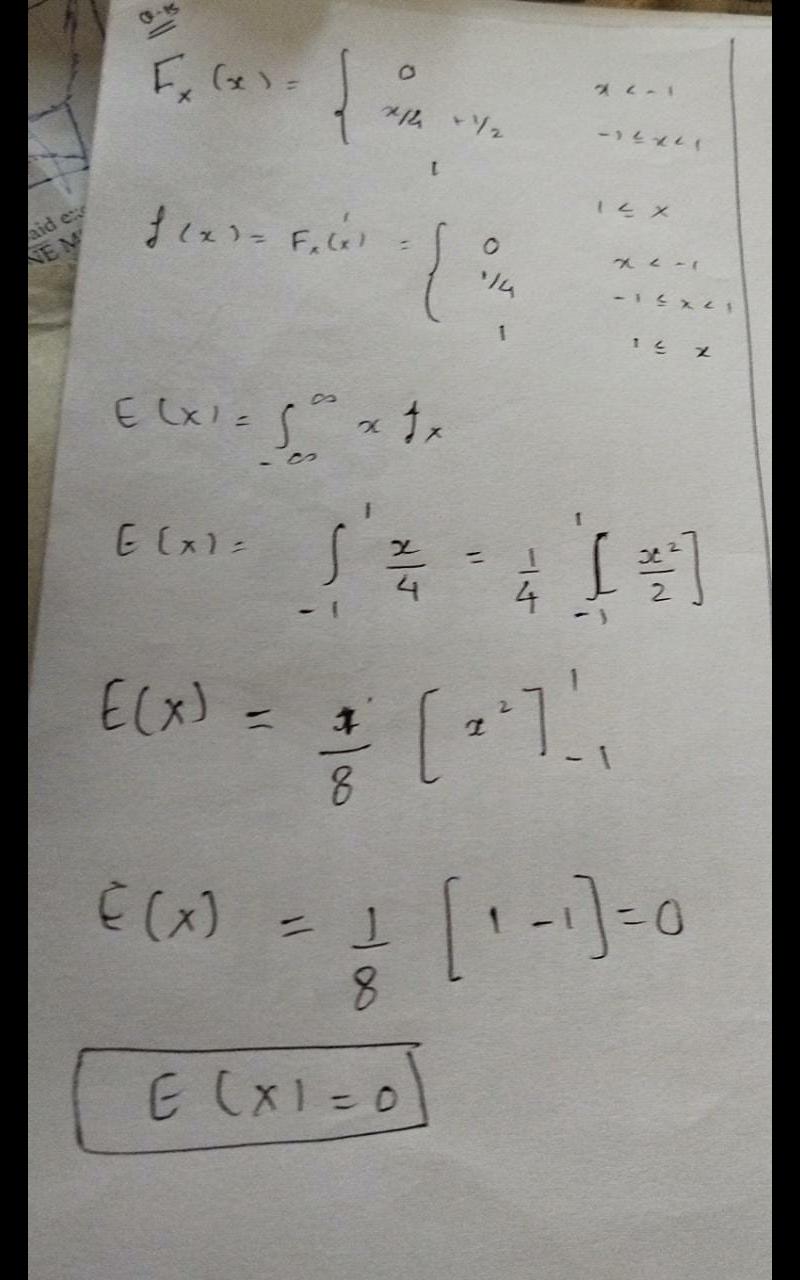 Q-15
Fx (x) = { 0 x < -1
x/4 + 1/2 -1 ≤ x < 1
1 1 ≤ x
f(x) = Fx(x)' = { 0 x < -1
1/4 -1 ≤ x < 1
1 1 ≤ x
E(x) = ∫_-∞^∞ x fx
E(x) = ∫_-1^1 x/4 = 1/4 _-1^1[x²/2]
E(X) = 1/8 [x²]_-1^1
E(X) = 1/8 [1-1] = 0
E(X) = 0
aid
NE M